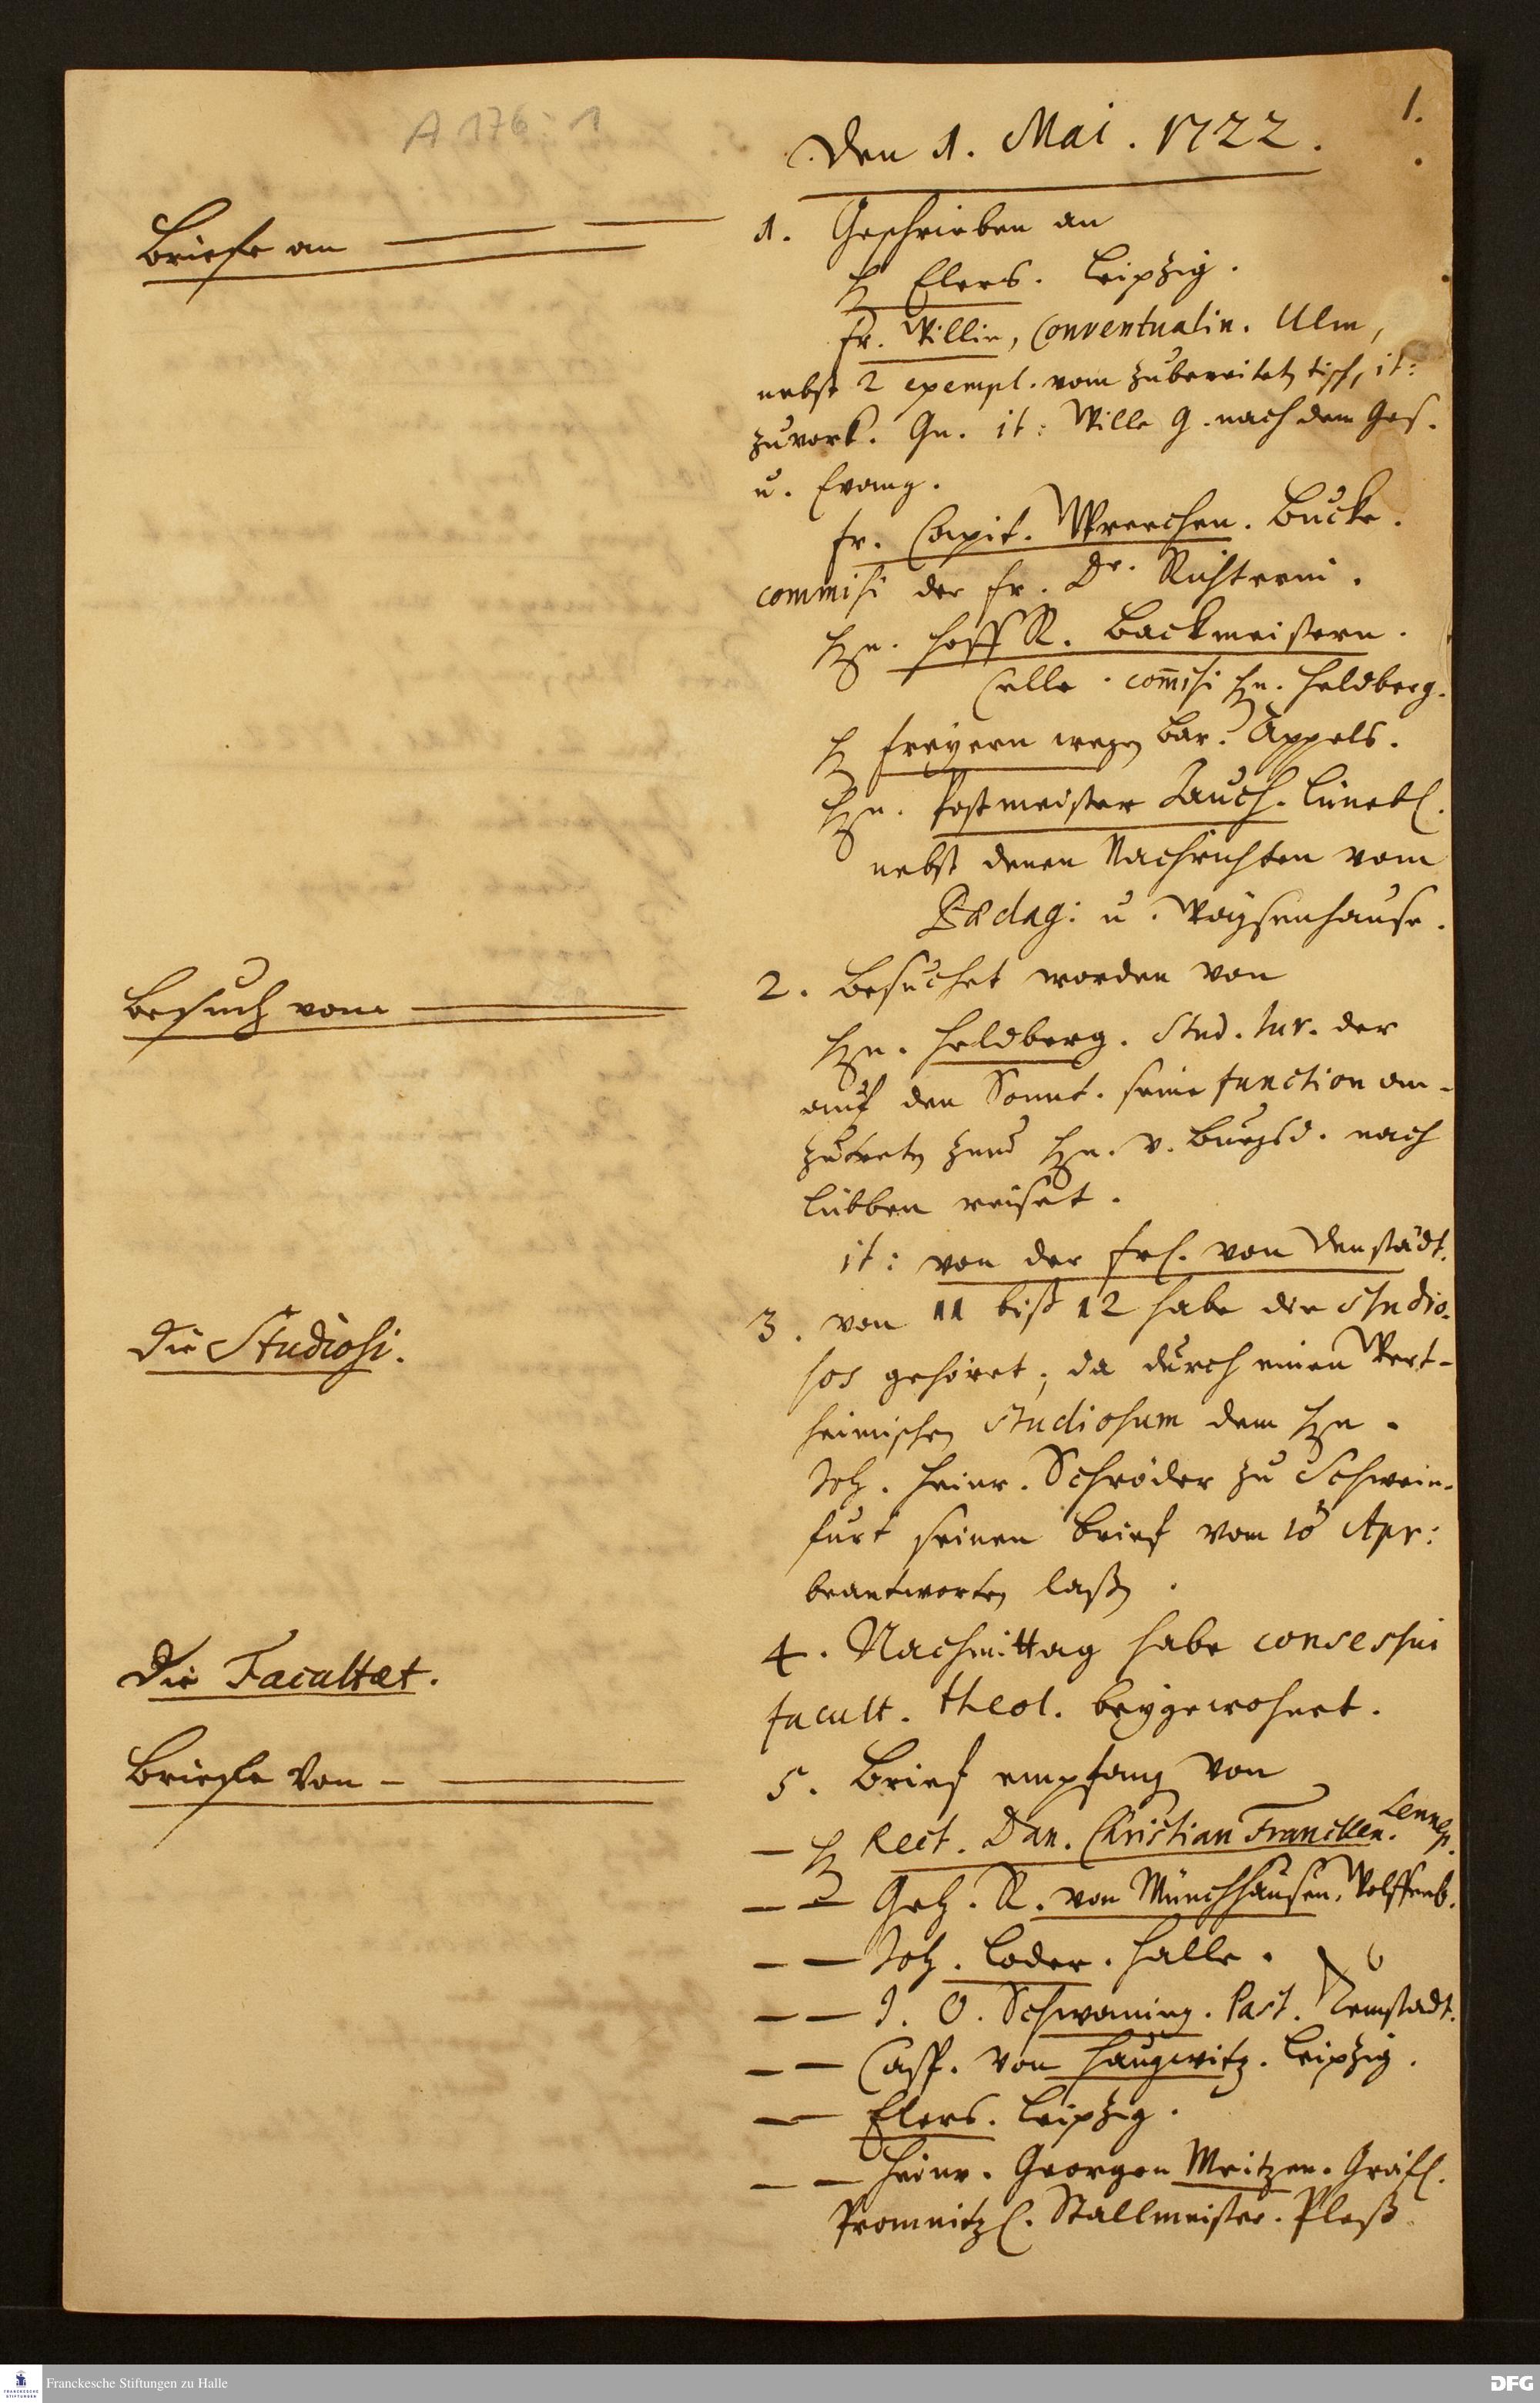 A 176 : 1
1.
Den 1. Mai. 1722.
Briefe an
1. Geschrieben an
H Elers. Leipzig.
Fr. Willin, Conventualin. Ulm,
nebst 2 exempl. vom zubereiteten Tisch, it:
zuvork. Gn. it: Wille G. nach dem Ges.
u. Evang.
Fr. Capit. Wreechen. Bucko.
commisi der Fr. Dr. Richterin.
Hrn. Hoff R. Backmeistern.
Celle. commisi Hn. Heldberg.
H Freyern wegen Bar. Appels.
Hrn. Postmeister Zauch. Lünebl.
nebst denen Nachrichten vom
Pædag: u. Waysenhause.
Besuch vom
2. Besuchet worden von
Hrn. Heldberg. Stud. Iur. der
auf den Sonnt. seine function an-
zutreten zum Hrn. v. Burgsd. nach
Lübben reiset.
it: von der Frl. von Denstädt.
Die Studiosi.
3. von 11 biß 12 habe die Studio-
sos gehöret; da durch einen Wert-
heimischen Studiosum dem Hrn.
Joh. Heinr. Schröder zu Schwein-
furt seinen Brief vom 10 Apr:
beantworten laßen.
Die Facultæt.
4. Nachmittag habe consessui
facult. theol. beygewohnet.
Briefe von
5. Brief empfang von
H Rect. Dan. Christian Francken. Lennep.
Geh. R. von Münchhausen. Wolffenb.
Joh. Loder. Halle.
J. O. Schwaning. Past. Neustadt.
Casp. von Haugwitz. Leipzig.
Elers. Leipzig.
Heinr. Georgen Meitzen. Gräfl.
Promnitzl. Stallmeister. Pleß
Franckesche Stiftungen zu Halle
DFG